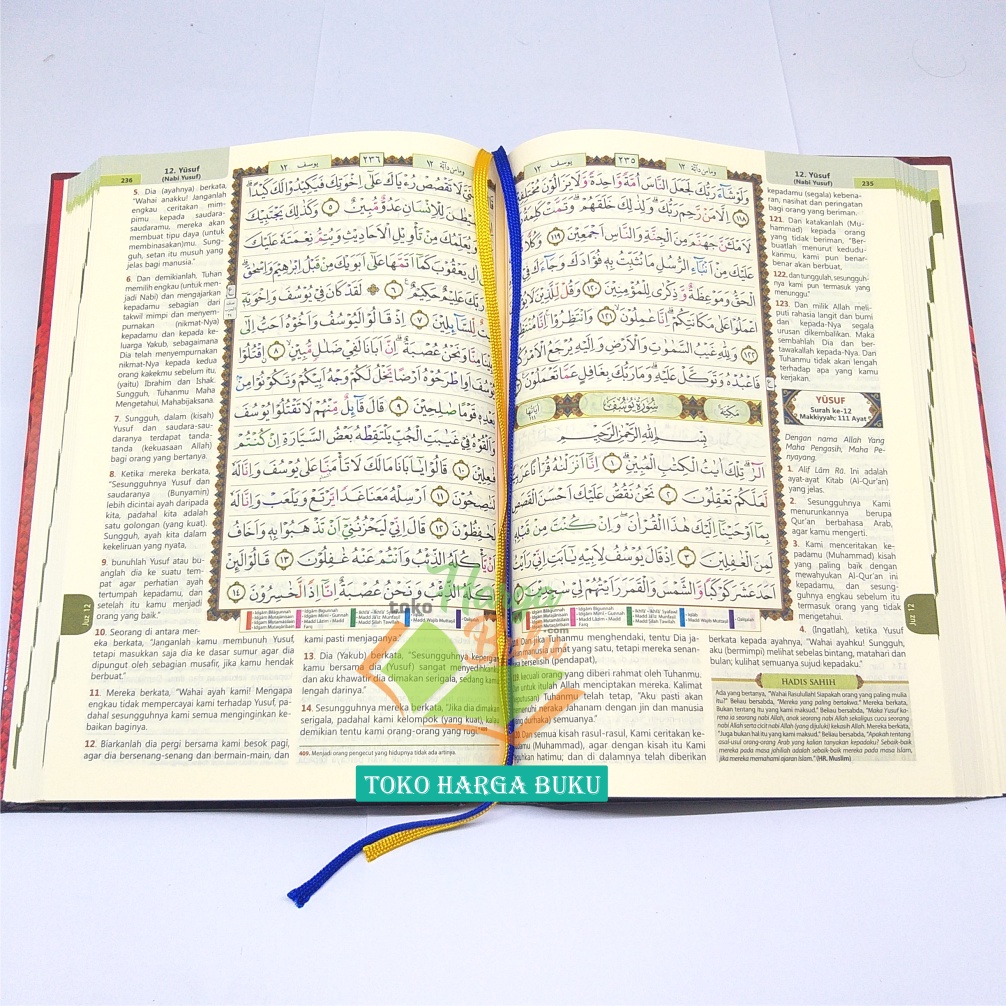 12. Yūsuf
(Nabi Yusuf)
235
وما من دآبّة ١٢
٢٣٥
يوسف ١٢
وَلَوْ شَآءَ رَبُّكَ لَجَعَلَ النَّاسَ اُمَّةً وَّاحِدَةً وَّلَا يَزَالُوْنَ
١١٨ اِلَّا مَنْ رَّحِمَ رَبُّكَ ۗوَلِذٰلِكَ خَلَقَهُمْ ۗوَتَمَّتْ كَلِمَةُ
لَاَمْلَـَٔنَّ جَهَنَّمَ مِنَ الْجِنَّةِ وَالنَّاسِ اَجْمَعِيْنَ ١١٩ وَكُلًّا
عَلَيْكَ مِنْ اَنْۢبَآءِ الرُّسُلِ مَا نُثَبِّتُ بِهٖ فُؤَادَكَ وَجَآءَكَ فِيْ
الْحَقُّ وَمَوْعِظَةٌ وَّذِكْرٰى لِلْمُؤْمِنِيْنَ ١٢٠ وَقُلْ لِّلَّذِيْنَ لَا
اعْمَلُوْا عَلٰى مَكَانَتِكُمْۗ اِنَّا عٰمِلُوْنَ ١٢١ وَانْتَظِرُوْاۚ اِنَّا
١٢٢ وَلِلّٰهِ غَيْبُ السَّمٰوٰتِ وَالْاَرْضِ وَاِلَيْهِ يُرْجَعُ الْاَمْرُ
فَاعْبُدْهُ وَتَوَكَّلْ عَلَيْهِۗ وَمَا رَبُّكَ بِغَافِلٍ عَمَّا تَعْمَلُوْنَ
مكيّة سورة يوسف اٰياتها ١١١
بِسْمِ اللّٰهِ الرَّحْمٰنِ الرَّحِيْمِ
الۤرٰ ۗ تِلْكَ اٰيٰتُ الْكِتٰبِ الْمُبِيْنِ ١ اِنَّآ اَنْزَلْنٰهُ قُرْاٰنًا
لَّعَلَّكُمْ تَعْقِلُوْنَ ٢ نَحْنُ نَقُصُّ عَلَيْكَ اَحْسَنَ الْقَصَصِ
بِمَآ اَوْحَيْنَآ اِلَيْكَ هٰذَا الْقُرْاٰنَۖ وَاِنْ كُنْتَ مِنْ قَبْلِهٖ
لَمِنَ الْغٰفِلِيْنَ ٣ اِذْ قَالَ يُوْسُفُ لِاَبِيْهِ يٰٓاَبَتِ اِنِّيْ رَاَيْتُ
اَحَدَ عَشَرَ كَوْكَبًا وَّالشَّمْسَ وَالْقَمَرَ رَاَيْتُهُمْ لِيْ سٰجِدِيْنَ
kepadamu (segala) kebena-
ran, nasihat dan peringatan
bagi orang yang beriman.
121. Dan katakanlah (Mu-
hammad) kepada orang
yang tidak beriman, "Ber-
buatlah menurut kedudu-
kanmu, kami pun benar-
benar akan berbuat,
122. dan tunggulah, sesungguh-
nya kami pun termasuk yang
menunggu."
123. Dan milik Allah meli-
puti rahasia langit dan bumi
dan kepada-Nya segala
urusan dikembalikan. Maka
sembahlah Dia dan ber-
tawakallah kepada-Nya. Dan
Tuhanmu tidak akan lengah
terhadap apa yang kamu
kerjakan.
YŪSUF
Surah ke-12
Makkiyyah; 111 Ayat
Dengan nama Allah Yang
Maha Pengasih, Maha Pe-
nyayang.
1. Alif Lām Rā. Ini adalah
ayat-ayat Kitab (Al-Qur'an)
yang jelas.
2. Sesungguhnya Kami
menurunkannya berupa
Qur'an berbahasa Arab,
agar kamu mengerti.
3. Kami menceritakan ke-
padamu (Muhammad) kisah
yang paling baik dengan
mewahyukan Al-Qur'an ini
kepadamu, dan sesung-
guhnya engkau sebelum itu
termasuk orang yang tidak
mengetahui.
4. (Ingatlah), ketika Yusuf
berkata kepada ayahnya, "Wahai ayahku! Sungguh,
aku (bermimpi) melihat sebelas bintang, matahari dan
bulan; kulihat semuanya sujud kepadaku."
HADIS SAHIH
Ada yang bertanya, "Wahai Rasulullah! Siapakah orang yang paling mulia
itu?" Beliau bersabda, "Mereka yang paling bertakwa." Mereka berkata,
Bukan tentang itu yang kami maksud." Beliau bersabda, "Maka Yusuf ka-
rena ia seorang nabi Allah, anak seorang nabi Allah sekaligus cucu seorang
nabi Allah serta cicit nabi Allah yang dijuluki) kekasih Allah. Mereka berkata,
"Juga bukan hal itu yang kami maksud." Beliau bersabda, "Apakah tentang
asal-usul orang-orang Arab yang kalian tanyakan kepadaku? Sebaik-baik
mereka pada masa jahiliah adalah sebaik-baik mereka pada masa Islam,
jika mereka memahami ajaran Islam." (HR. Muslim)
menghendaki, tentu Dia ja-
yang satu, tetapi mereka senan-
berselisih (pendapat),
kecuali orang yang diberi rahmat oleh Tuhanmu.
untuk itulah Allah menciptakan mereka. Kalimat
Tuhanmu telah tetap, "Aku pasti akan
neraka Jahanam dengan jin dan manusia
durhaka) semuanya."
semua kisah rasul-rasul, Kami ceritakan ke-
(Muhammad), agar dengan kisah itu Kami
hatimu; dan di dalamnya telah diberikan
Juz 12
236
12. Yūsuf
(Nabi Yusuf)
وما من دآبّة ١٢
٢٣٦
يوسف ١٢
لَا تَقْصُصْ رُءْيَاكَ عَلٰٓى اِخْوَتِكَ فَيَكِيْدُوْا لَكَ كَيْدًا
لِلْاِنْسَانِ عَدُوٌّ مُّبِيْنٌ ٥ وَكَذٰلِكَ يَجْتَبِيْكَ
وَيُعَلِّمُكَ مِنْ تَأْوِيْلِ الْاَحَادِيْثِ وَيُتِمُّ نِعْمَتَهٗ عَلَيْكَ
اٰلِ يَعْقُوْبَ كَمَآ اَتَمَّهَا عَلٰٓى اَبَوَيْكَ مِنْ قَبْلُ اِبْرٰهِيْمَ وَاِسْحٰقَۗ
رَبَّكَ عَلِيْمٌ حَكِيْمٌ ٦ ۞ لَقَدْ كَانَ فِيْ يُوْسُفَ وَاِخْوَتِهٖٓ
لِّلسَّآىِٕلِيْنَ ٧ اِذْ قَالُوْا لَيُوْسُفُ وَاَخُوْهُ اَحَبُّ اِلٰٓى
مِنَّا وَنَحْنُ عُصْبَةٌ ۗاِنَّ اَبَانَا لَفِيْ ضَلٰلٍ مُّبِيْنٍ ٨ اقْتُلُوْا
يُوْسُفَ اَوِ اطْرَحُوْهُ اَرْضًا يَّخْلُ لَكُمْ وَجْهُ اَبِيْكُمْ وَتَكُوْنُوْا مِنْۢ
بَعْدِهٖ قَوْمًا صٰلِحِيْنَ ٩ قَالَ قَآىِٕلٌ مِّنْهُمْ لَا تَقْتُلُوْا يُوْسُفَ
وَاَلْقُوْهُ فِيْ غَيٰبَتِ الْجُبِّ يَلْتَقِطْهُ بَعْضُ السَّيَّارَةِ اِنْ كُنْتُمْ
فٰعِلِيْنَ ١٠ قَالُوْا يٰٓاَبَانَا مَا لَكَ لَا تَأْمَنَّا عَلٰى يُوْسُفَ وَاِنَّا لَهٗ
لَنٰصِحُوْنَ ١١ اَرْسِلْهُ مَعَنَا غَدًا يَّرْتَعْ وَيَلْعَبْ وَاِنَّا لَهٗ
لَحٰفِظُوْنَ ١٢ قَالَ اِنِّيْ لَيَحْزُنُنِيْٓ اَنْ تَذْهَبُوْا بِهٖ وَاَخَافُ
اَنْ يَّأْكُلَهُ الذِّئْبُ وَاَنْتُمْ عَنْهُ غٰفِلُوْنَ ١٣ قَالُوْا لَىِٕنْ
اَكَلَهُ الذِّئْبُ وَنَحْنُ عُصْبَةٌ اِنَّآ اِذًا لَّخٰسِرُوْنَ ١٤
5. Dia (ayahnya) berkata,
"Wahai anakku! Janganlah
engkau ceritakan mim-
pimu kepada saudara-
saudaramu, mereka akan
membuat tipu daya (untuk
membinasakan)mu. Sung-
guh, setan itu musuh yang
jelas bagi manusia."
6. Dan demikianlah, Tuhan
memilih engkau (untuk men-
jadi Nabi) dan mengajarkan
kepadamu sebagian dari
takwil mimpi dan menyem-
purnakan (nikmat-Nya)
kepadamu dan kepada ke-
luarga Yakub, sebagaimana
Dia telah menyempurnakan
nikmat-Nya kepada kedua
orang kakekmu sebelum itu,
(yaitu) Ibrahim dan Ishak.
Sungguh, Tuhanmu Maha
Mengetahui, Mahabijaksana.
7. Sungguh, dalam (kisah)
Yusuf dan saudara-sau-
daranya terdapat tanda-
tanda (kekuasaan Allah)
bagi orang yang bertanya.
8. Ketika mereka berkata,
"Sesungguhnya Yusuf dan
saudaranya (Bunyamin)
lebih dicintai ayah daripada
kita, padahal kita adalah
satu golongan (yang kuat).
Sungguh, ayah kita dalam
kekeliruan yang nyata,
9. bunuhlah Yusuf atau bu-
anglah dia ke suatu tem-
pat agar perhatian ayah
tertumpah kepadamu, dan
setelah itu kamu menjadi
orang yang baik."
10. Seorang di antara mer-
eka berkata, "Janganlah kamu membunuh Yusuf,
tetapi masukkan saja dia ke dasar sumur agar dia
dipungut oleh sebagian musafir, jika kamu hendak
berbuat."
11. Mereka berkata, "Wahai ayah kami! Mengapa
engkau tidak mempercayai kami terhadap Yusuf, pa-
dahal sesungguhnya kami semua menginginkan ke-
baikan baginya.
12. Biarkanlah dia pergi bersama kami besok pagi,
agar dia bersenang-senang dan bermain-main, dan
kami pasti menjaganya."
13. Dia (Yakub) berkata, "Sesungguhnya kepergian
kamu bersama dia (Yusuf) sangat menyedihkanku
dan aku khawatir dia dimakan serigala, sedang kamu
lengah darinya."
14. Sesungguhnya mereka berkata, "Jika dia dimakan
serigala, padahal kami kelompok (yang kuat), kalau
demikian tentu kami orang-orang yang rugi."
409. Menjadi orang pengecut yang hidupnya tidak ada artinya.
Juz 12
toko
Harga
Buku
.com
TOKO HARGA BUKU